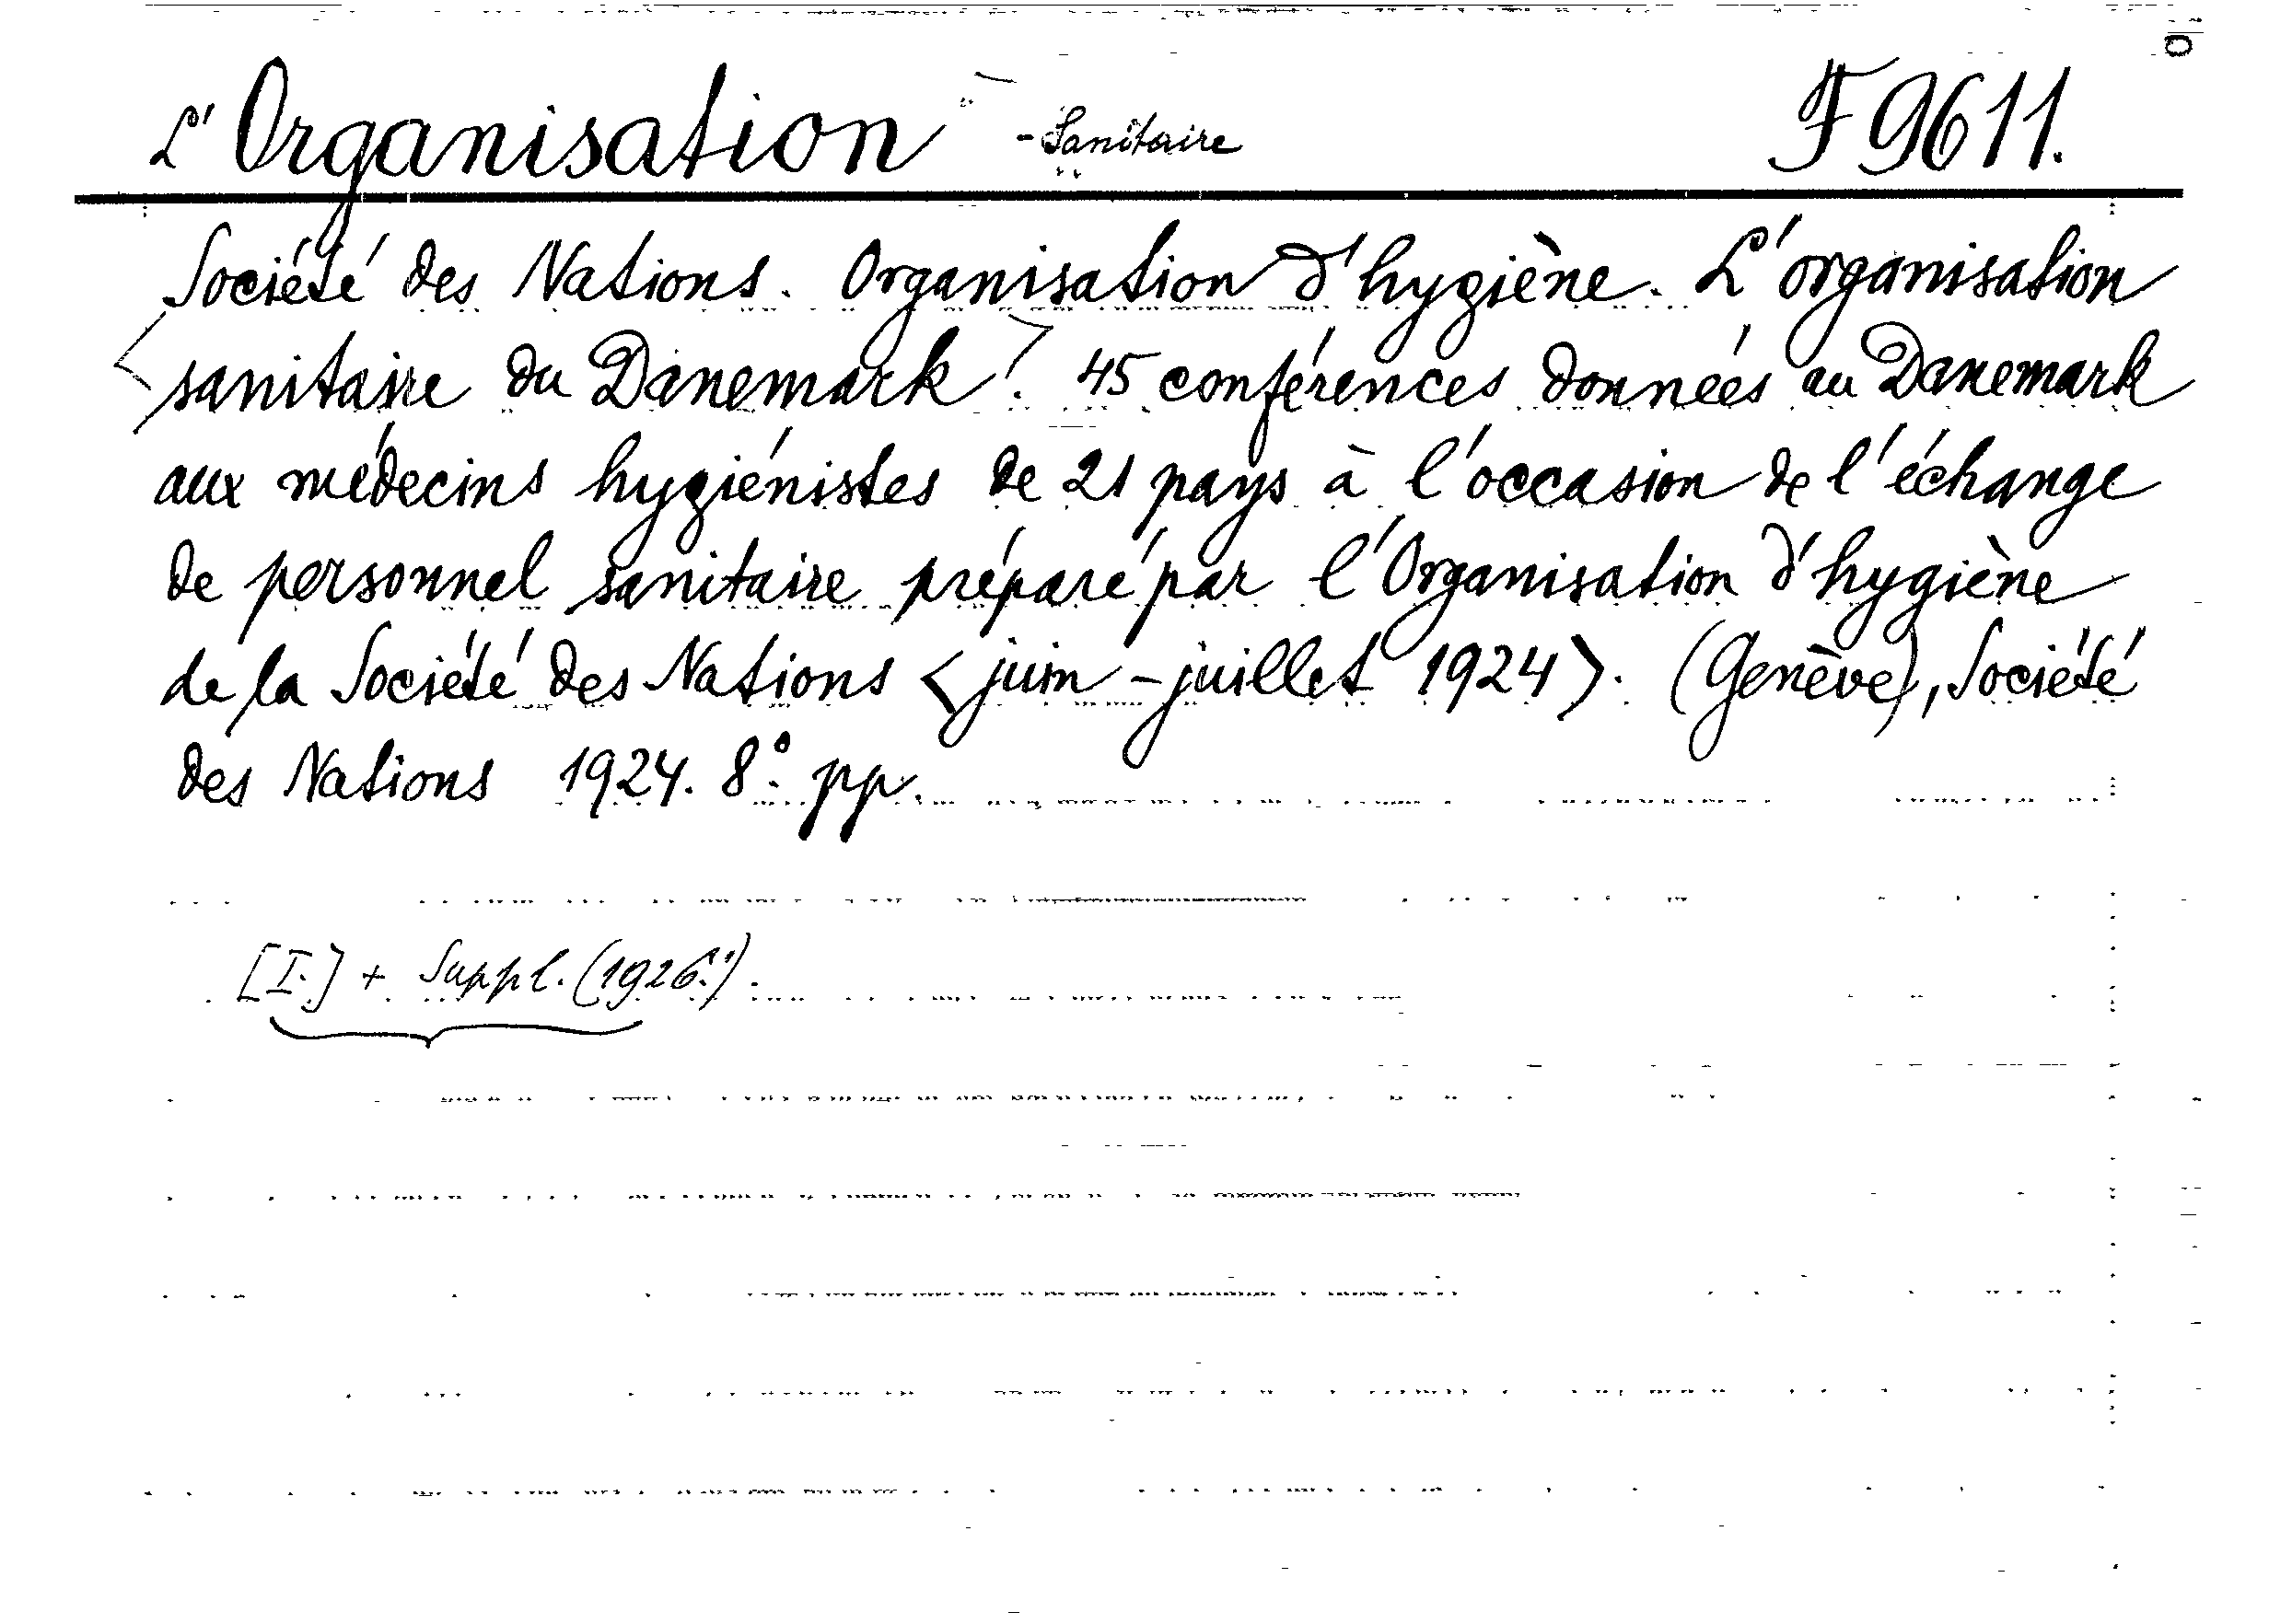 L'Organisation - Sanitaire F 9611.
Société des Nations. Organisation d'hygiène. L'organisation
sanitaire du Danemark. 45 conférences données au Danemark
aux médecins hygiénistes de 21 pays à l'occasion de l'échange
de personnel sanitaire préparé par l'Organisation d'hygiène
de la Société des Nations <juin - juillet 1924>. (Genève), Société
des Nations 1924. 8°. pp.
[I.] + Suppl. (1926.).